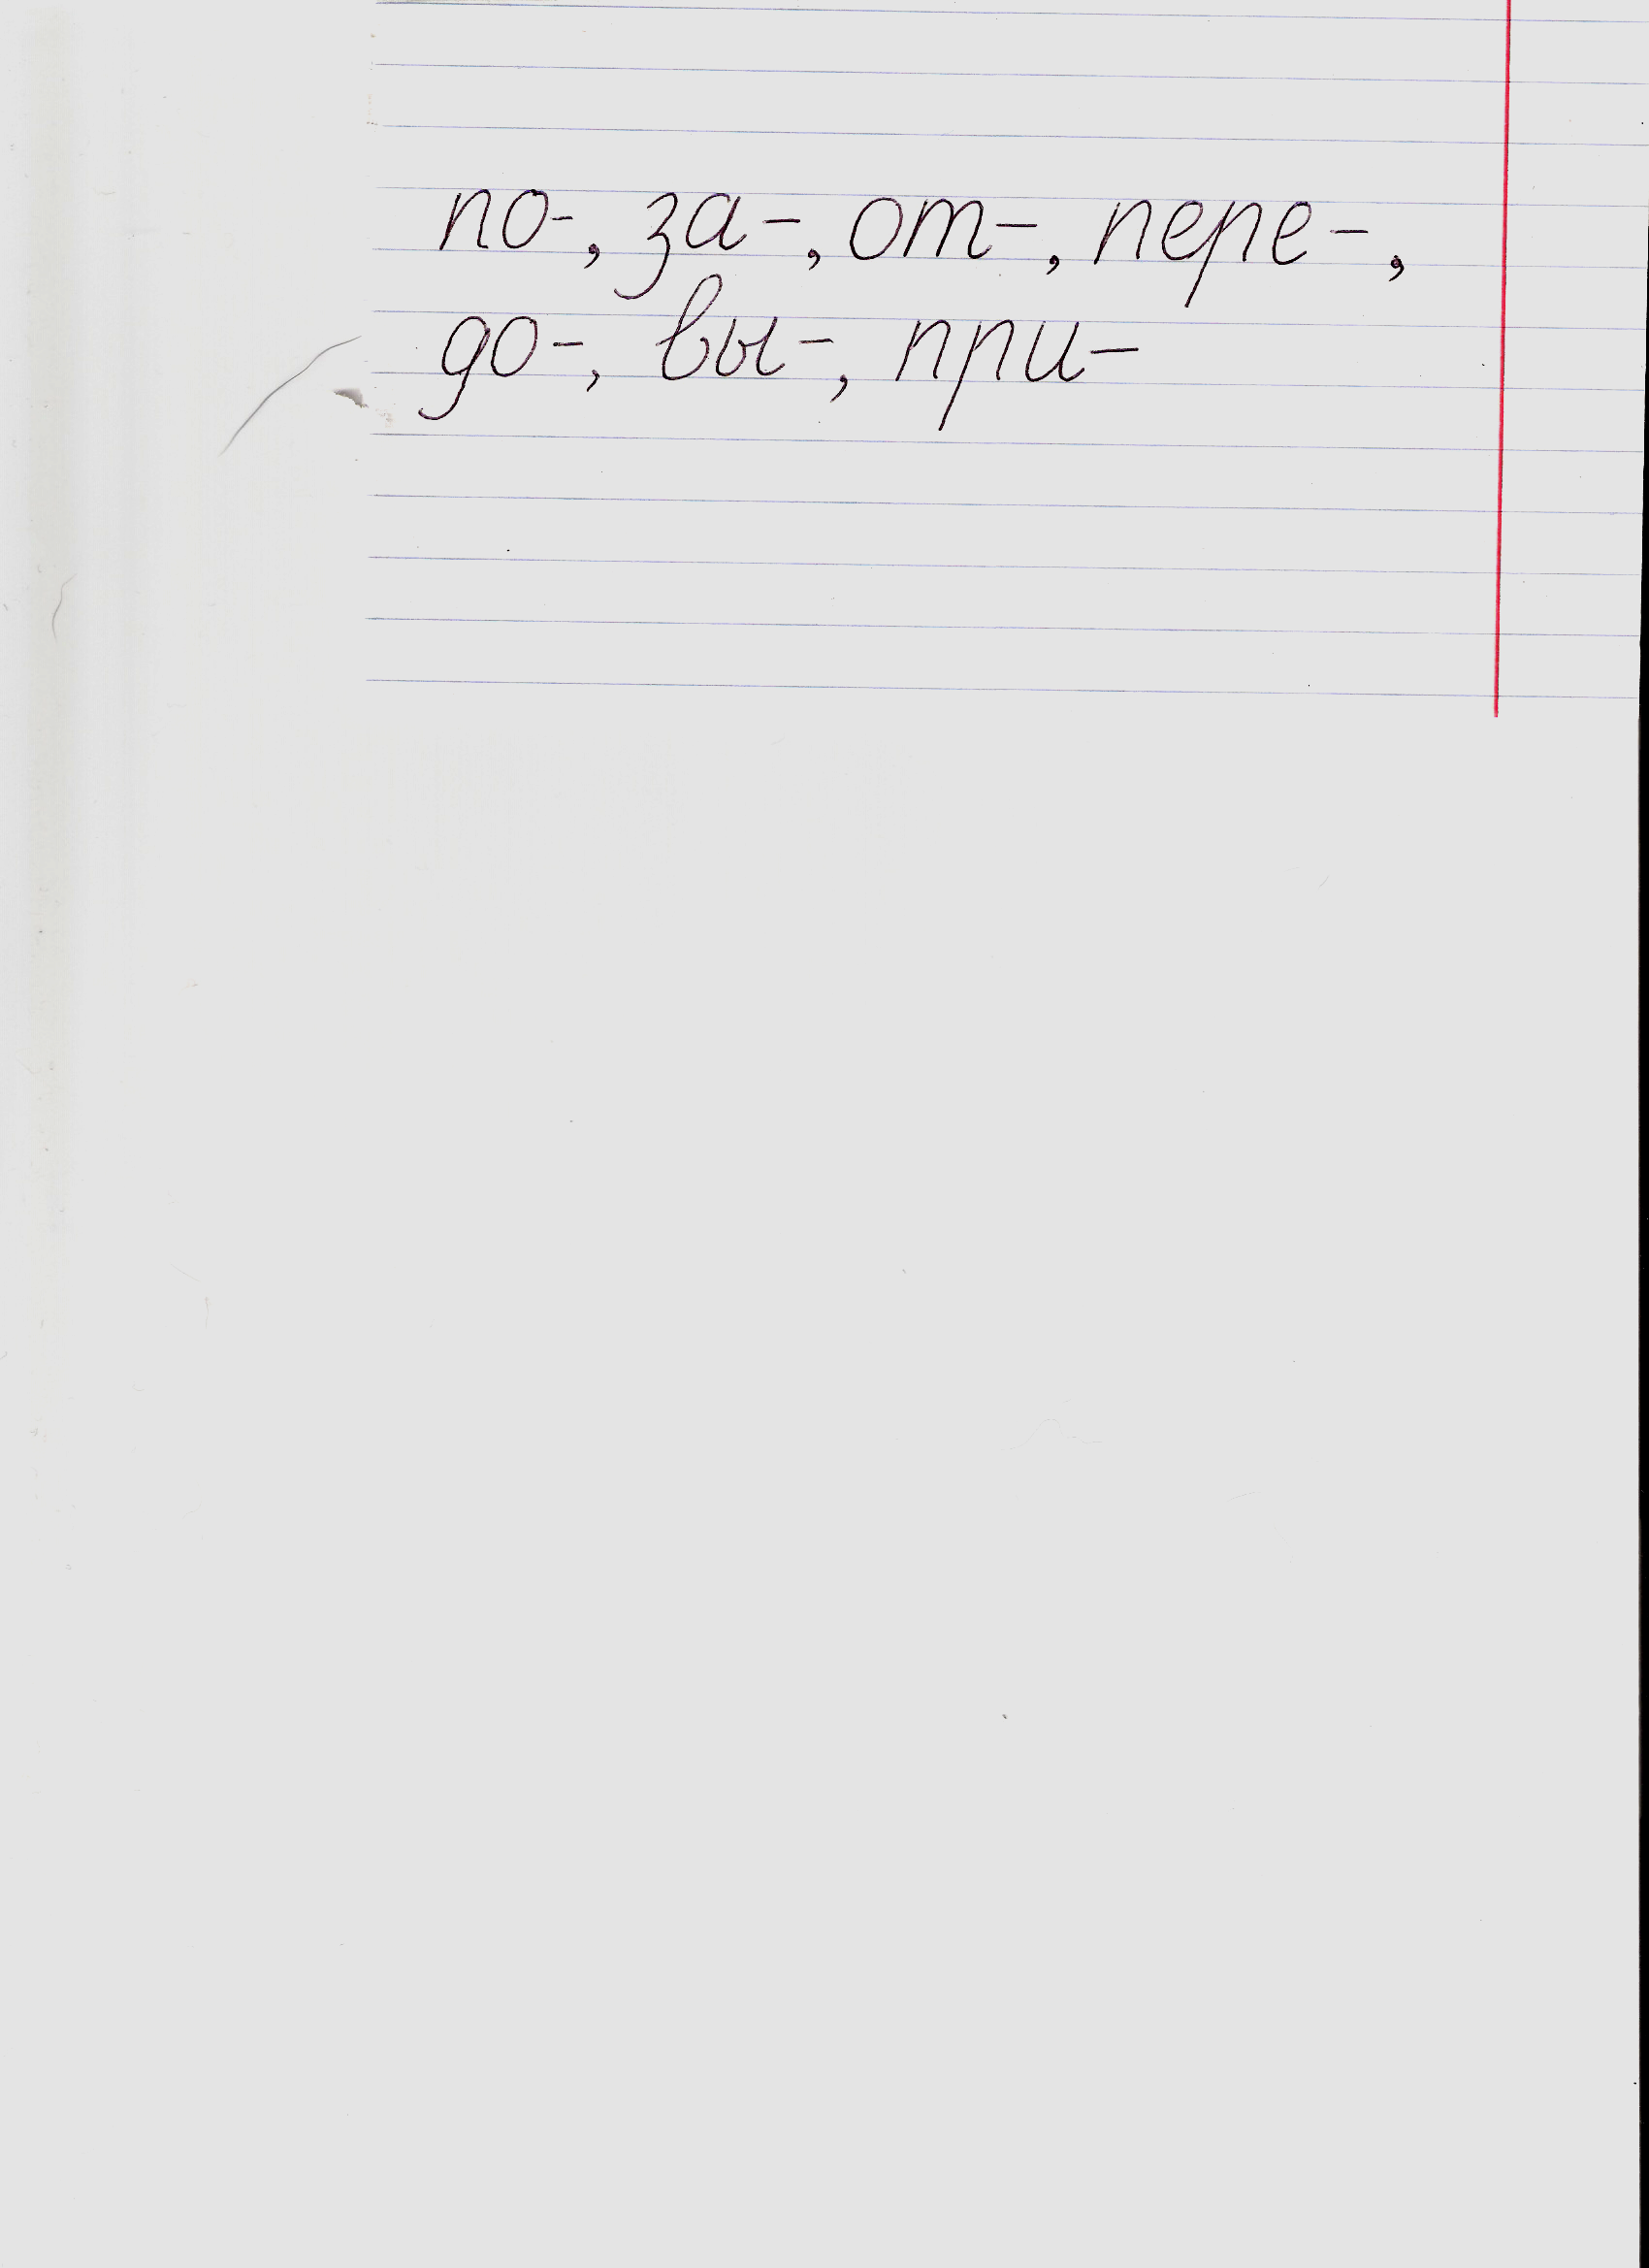 по-, за-, от-, пере-,
до-, вы-, при-